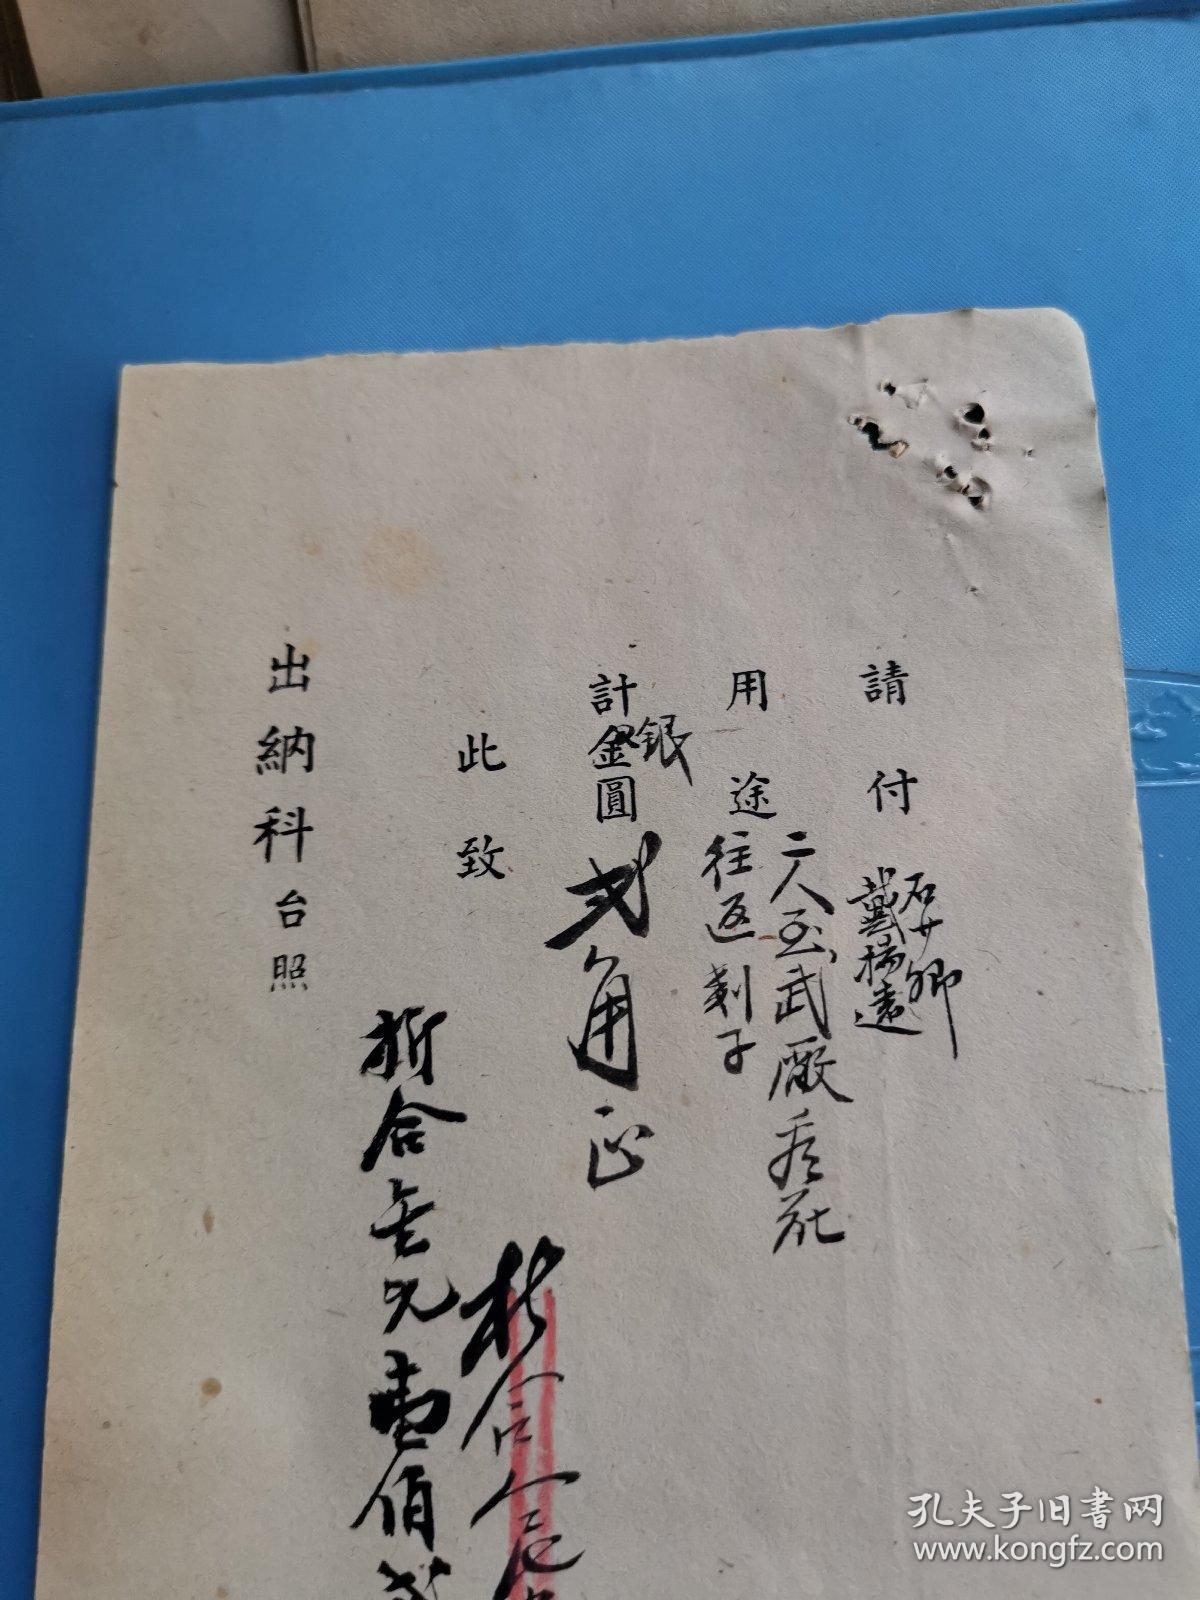 請付 石少卿
戴楊遠
用途 二人至武廠看花
往返剗子
計金圓 銀
弍角正
此致
折合金
折合金元壹佰弍
出納科台照
孔夫子旧书网
www.kongfz.com